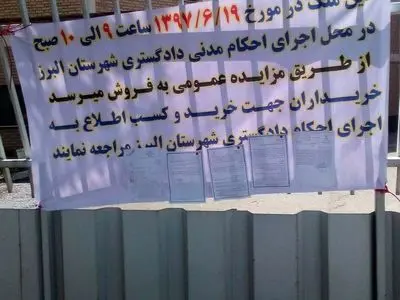 این ملک در مورخ ۱۳۹۷/۶/۱۹ ساعت ۹ الی ۱۰ صبح
در محل اجرای احکام مدنی دادگستری شهرستان البرز
از طریق مزایده عمومی به فروش میرسد
خریداران جهت خرید و کسب اطلاع به
اجرای احکام دادگستری شهرستان البرز مراجعه نمایند